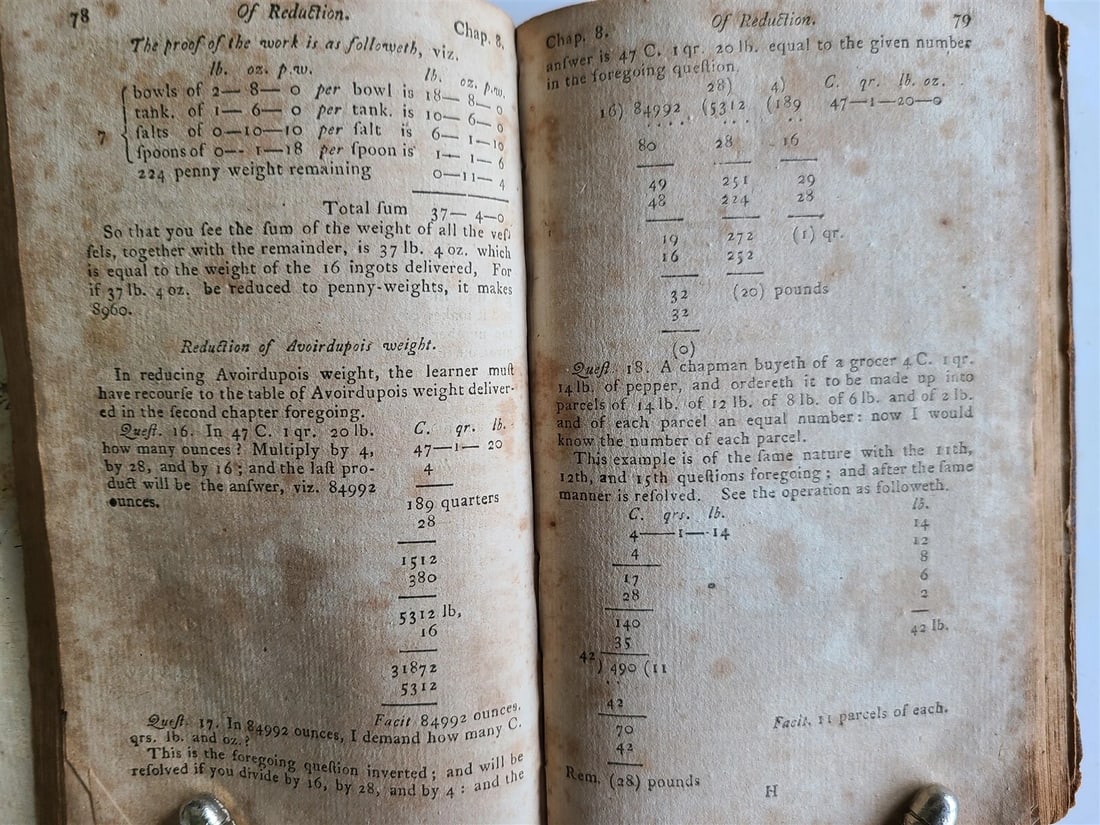 78 Of Reduction. Chap. 8.
The proof of the work is as followeth, viz.
lb. oz. p.w. lb. oz. p.w.
bowls of 2— 8— 0 per bowl is 18— 8— 0
tank. of 1— 6— 0 per tank. is 10— 6— 0
7 ſalts of 0—10—10 per ſalt is 6— 1—10
ſpoons of 0-- 1—18 per ſpoon is 1— 1— 6
224 penny weight remaining 0—11— 4
Total ſum 37— 4—0
So that you ſee the ſum of the weight of all the veſ-
ſels, together with the remainder, is 37 lb. 4 oz. which
is equal to the weight of the 16 ingots delivered, For
if 37 lb. 4 oz. be reduced to penny-weights, it makes
8960.
Reduction of Avoirdupois weight.
In reducing Avoirdupois weight, the learner muſt
have recourſe to the table of Avoirdupois weight deliver-
ed in the ſecond chapter foregoing.
Queſt. 16. In 47 C. 1 qr. 20 lb. C. qr. lb.
how many ounces? Multiply by 4, 47—1— 20
by 28, and by 16; and the laſt pro- 4
duct will be the anſwer, viz. 84992
ounces. 189 quarters
28
1512
380
5312 lb,
16
31872
5312
Facit 84992 ounces.
Queſt. 17. In 84992 ounces, I demand how many C.
qrs. lb. and oz.?
This is the foregoing queſtion inverted; and will be
reſolved if you divide by 16, by 28, and by 4: and the
Chap. 8. Of Reduction. 79
anſwer is 47 C. 1 qr. 20 lb. equal to the given number
in the foregoing queſtion.
28) 4) C. qr. lb. oz.
16) 84992 (5312 (189 47—1—20—0
80 28 16
49 251 29
48 224 28
19 272 (1) qr.
16 252
32 (20) pounds
32
(0)
Queſt. 18. A chapman buyeth of a grocer 4 C. 1 qr.
14 lb. of pepper, and ordereth it to be made up into
parcels of 14 lb. of 12 lb. of 8 lb. of 6 lb. and of 2 lb.
and of each parcel an equal number: now I would
know the number of each parcel.
This example is of the ſame nature with the 11th,
12th, and 15th queſtions foregoing; and after the ſame
manner is reſolved. See the operation as followeth.
C. qrs. lb. lb.
4——1—-14 14
4 12
17 8
28 6
140 2
35 42 lb.
42) 490 (11
42 Facit, 11 parcels of each.
70
42
Rem. (28) pounds
H